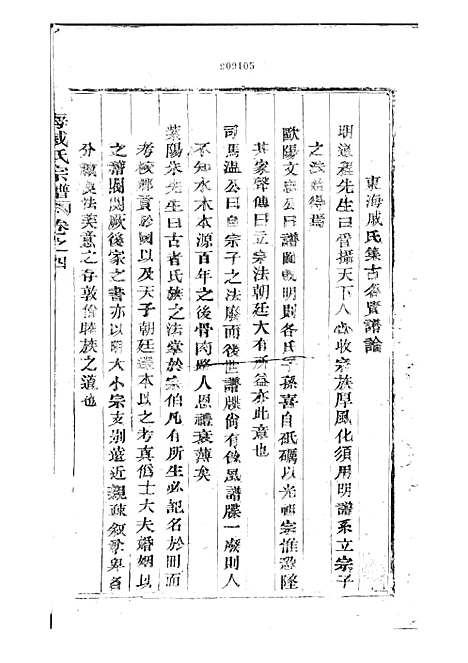 209105
東海戚氏集古名賢譜論
明道程先生曰管攝天下人心收宗族厚風化須用明譜系立宗子
之法始得焉
歐陽文忠公曰譜圖既明則各氏子孫喜自砥礪以光輝宗惟恐墜
其家聲傳曰立宗法朝廷大有所益亦此意也
司馬溫公曰自宗子之法廢而後世譜牒尚有後風譜牒一廢則人
不知水木本源百年之後骨肉路人恩禮衰薄矣
紫陽朱先生曰古者氏族之法掌於宗伯凡有所生必記名於冊而
考校郷貢於國以及天子朝廷選本以之考真僞士大夫婚姻以
之譜閥閱厥後家之書亦以明大小宗支別遠近親疎叙尊卑省
分猶良法美意之存敦倫睦族之道也
海戚氏宗譜 卷之四